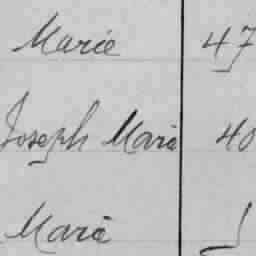 Marie 47
Joseph Marie 40
Marie